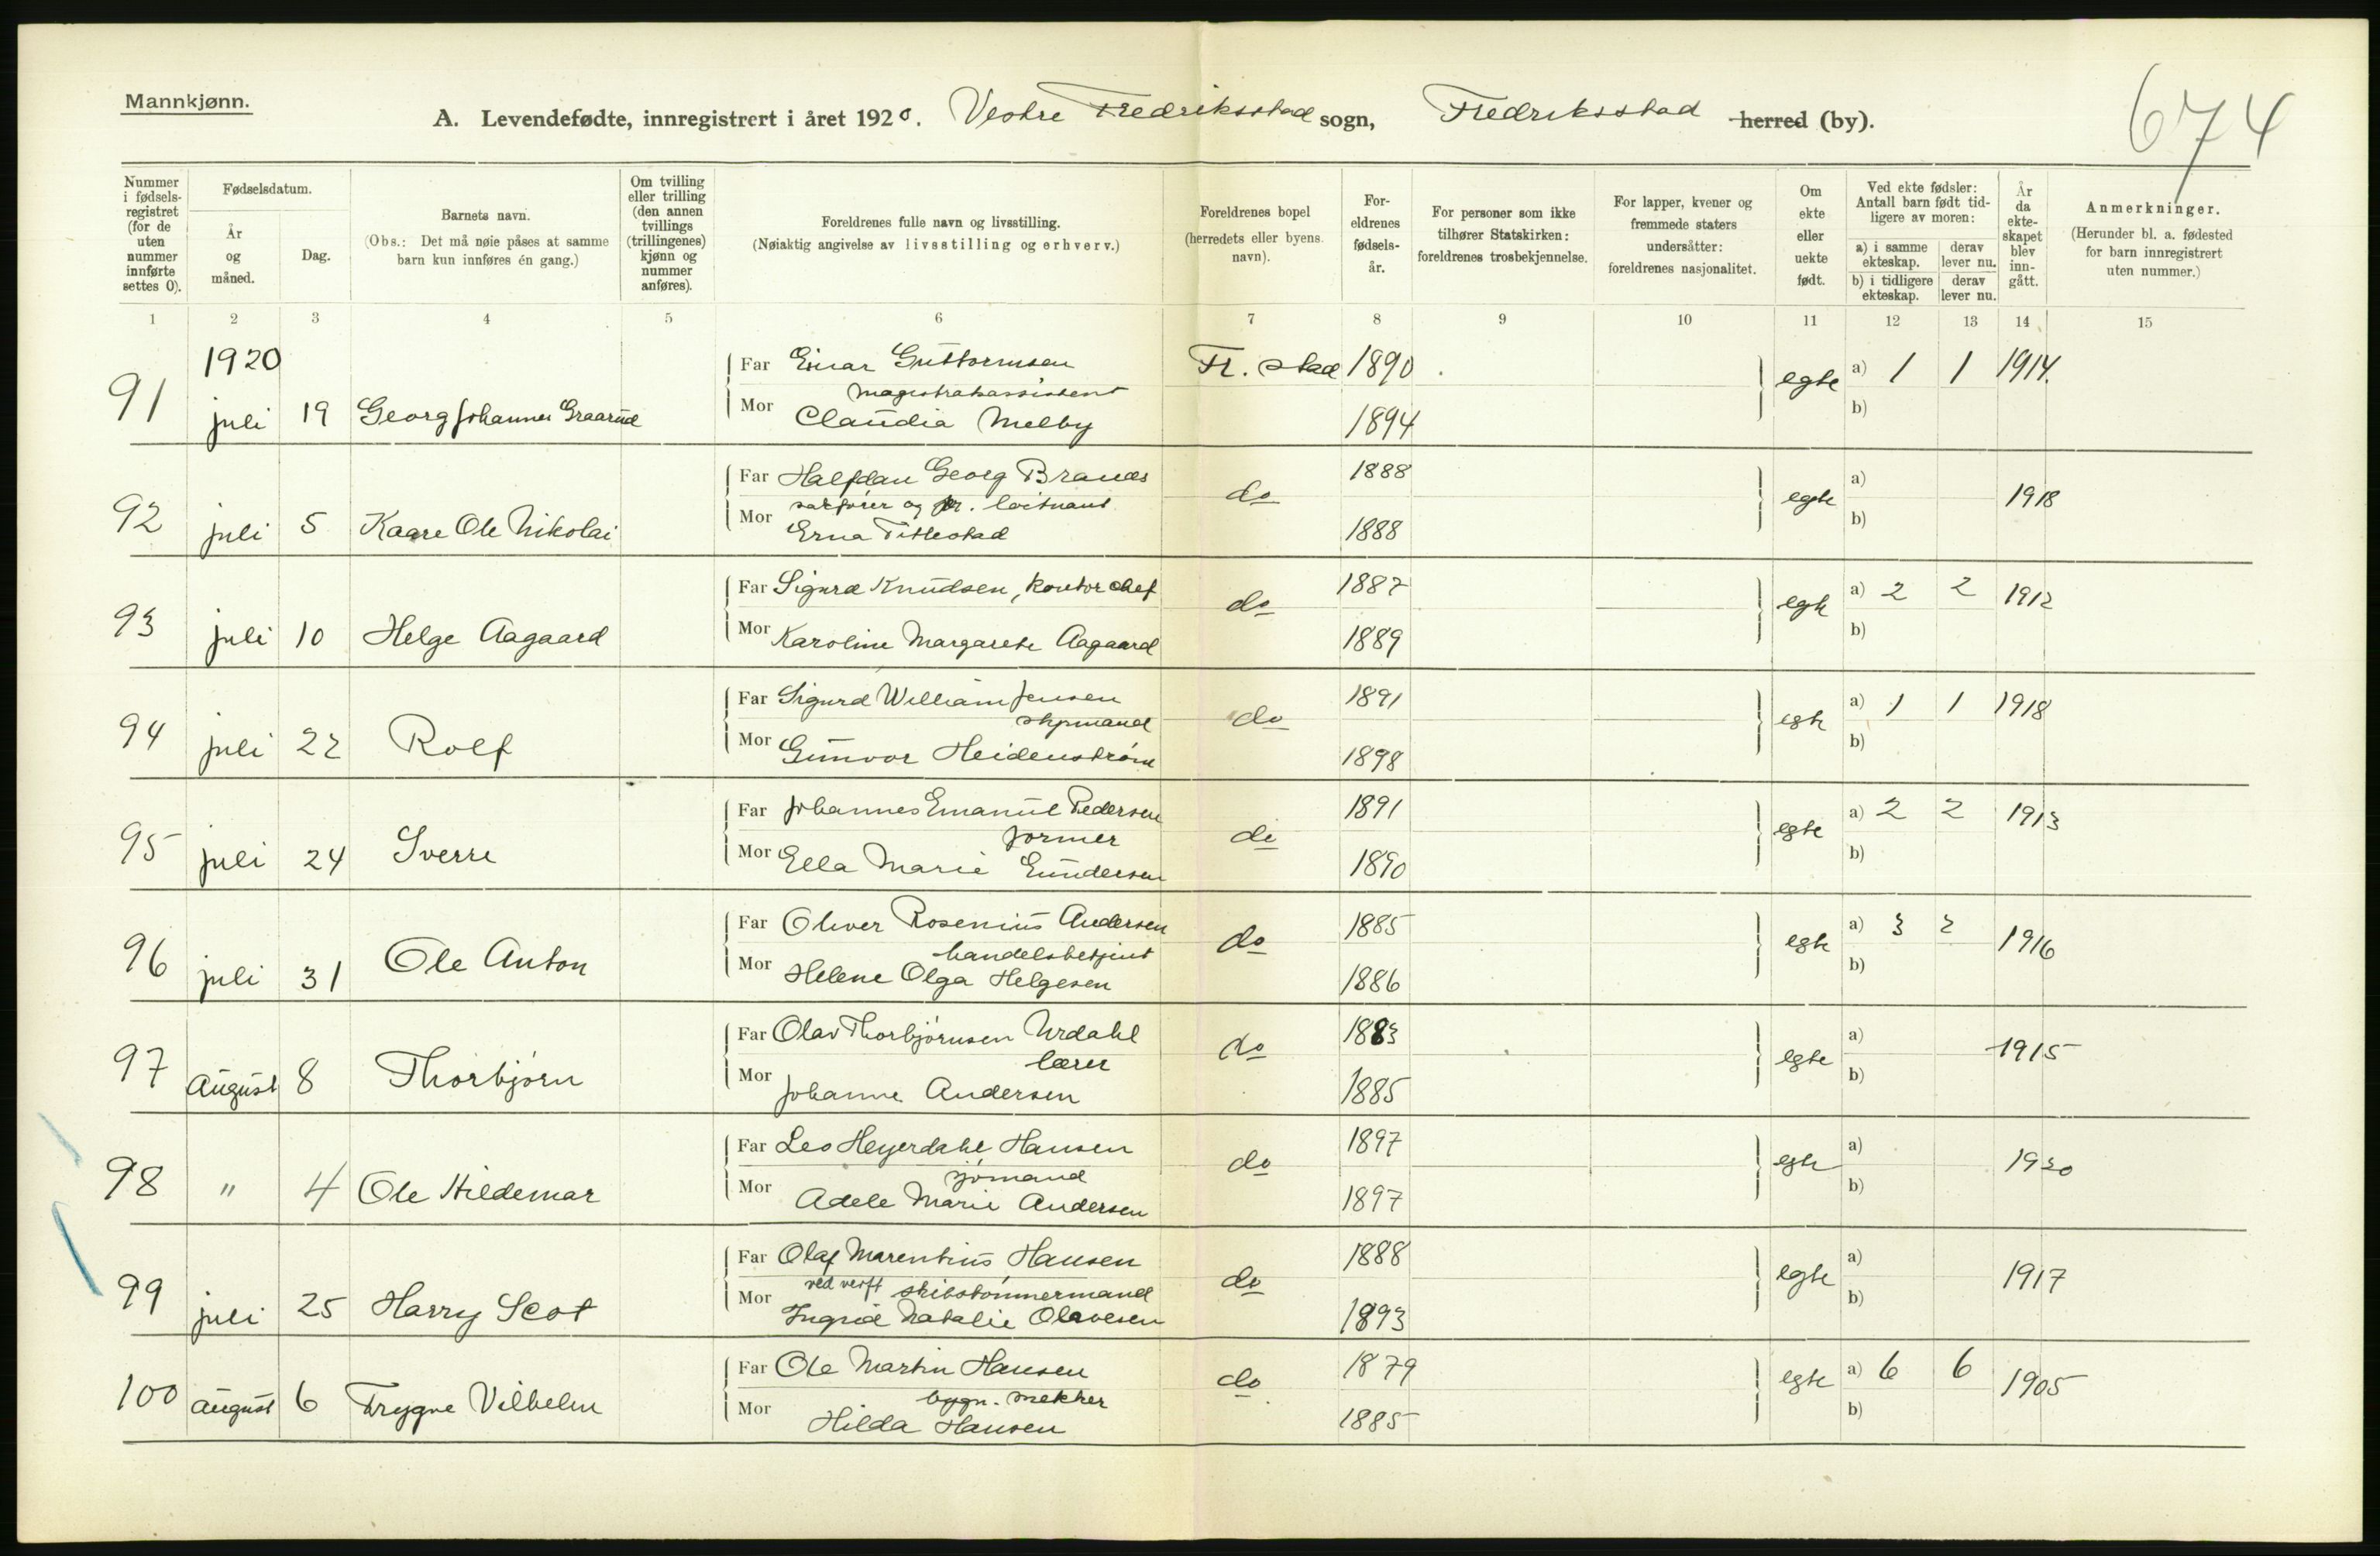 Mannkjønn.
A. Levendefødte, innregistrert i året 1920. Vestre Fredriksstad sogn, Fredriksstad herred (by).
674
Nummer i fødsels-registret (for de uten nummer innførte settes 0).
Fødselsdatum.
År og måned.
Dag.
Barnets navn.
(Obs.: Det må nøie påses at samme barn kun innføres én gang.)
Om tvilling eller trilling (den annen tvillings (trillingenes) kjønn og nummer anføres).
Foreldrenes fulle navn og livsstilling.
(Nøiaktig angivelse av livsstilling og erhverv.)
Foreldrenes bopel (herredets eller byens navn).
For-eldrenes fødsels-år.
For personer som ikke tilhører Statskirken: foreldrenes trosbekjennelse.
For lapper, kvener og fremmede staters undersåtter: foreldrenes nasjonalitet.
Om ekte eller uekte født.
Ved ekte fødsler: Antall barn født tid-ligere av moren:
a) i samme ekteskap. derav lever nu.
b) i tidligere ekteskap. derav lever nu.
År da ekte-skapet blev inn-gått.
Anmerkninger.
(Herunder bl. a. fødested for barn innregistrert uten nummer.)
1 2 3 4 5 6 7 8 9 10 11 12 13 14 15
1920
Far Einar Guttormsen Fr. stad 1890 a) 1 1 1914.
91 juli 19 Georg Johannes Graarud magistratsassistent egte
Mor Claudia Melby 1894 b)
Far Halfdan Georg Brandes 1888 a)
92 juli 5 Kaare Ole Nikolai sakfører og pr. løitnant do egte 1918
Mor Erna Tittestad 1888 b)
Far Sigurd Knudsen, kontorchef 1887 a) 2 2 1912
93 juli 10 Helge Aagaard do egte
Mor Karoline Margarete Aagaard 1889 b)
Far Sigurd William Jensen 1891 a) 1 1 1918
94 juli 22 Rolf styrmand do egte
Mor Gunvor Heidenstrøm 1898 b)
Far Johannes Emanuel Pedersen 1891 a) 2 2 1913
95 juli 24 Sverre former do egte
Mor Ella Marie Gundersen 1890 b)
Far Oliver Rosenius Andersen 1885 a) 3 2 1916
96 juli 31 Ole Anton handelsbetjent do egte
Mor Helene Olga Helgesen 1886 b)
Far Olav Thorbjørnsen Urdahl 1883 a)
97 August 8 Thorbjørn lærer do egte 1915
Mor Johanne Andersen 1885 b)
Far Leo Heyerdahl Hansen 1897 a)
98 " 4 Ole Hildemar sjømand do egte 1920
Mor Adele Marie Andersen 1897 b)
Far Olaf Marentius Hansen 1888 a)
99 juli 25 Harry Scot ved verft skibstømmermand do egte 1917
Mor Ingrid Natalie Olavesen 1893 b)
Far Ole Martin Hansen 1879 a) 6 6 1905
100 august 6 Trygve Vilhelm bygn. snekker do egte
Mor Hilda Hansen 1885 b)